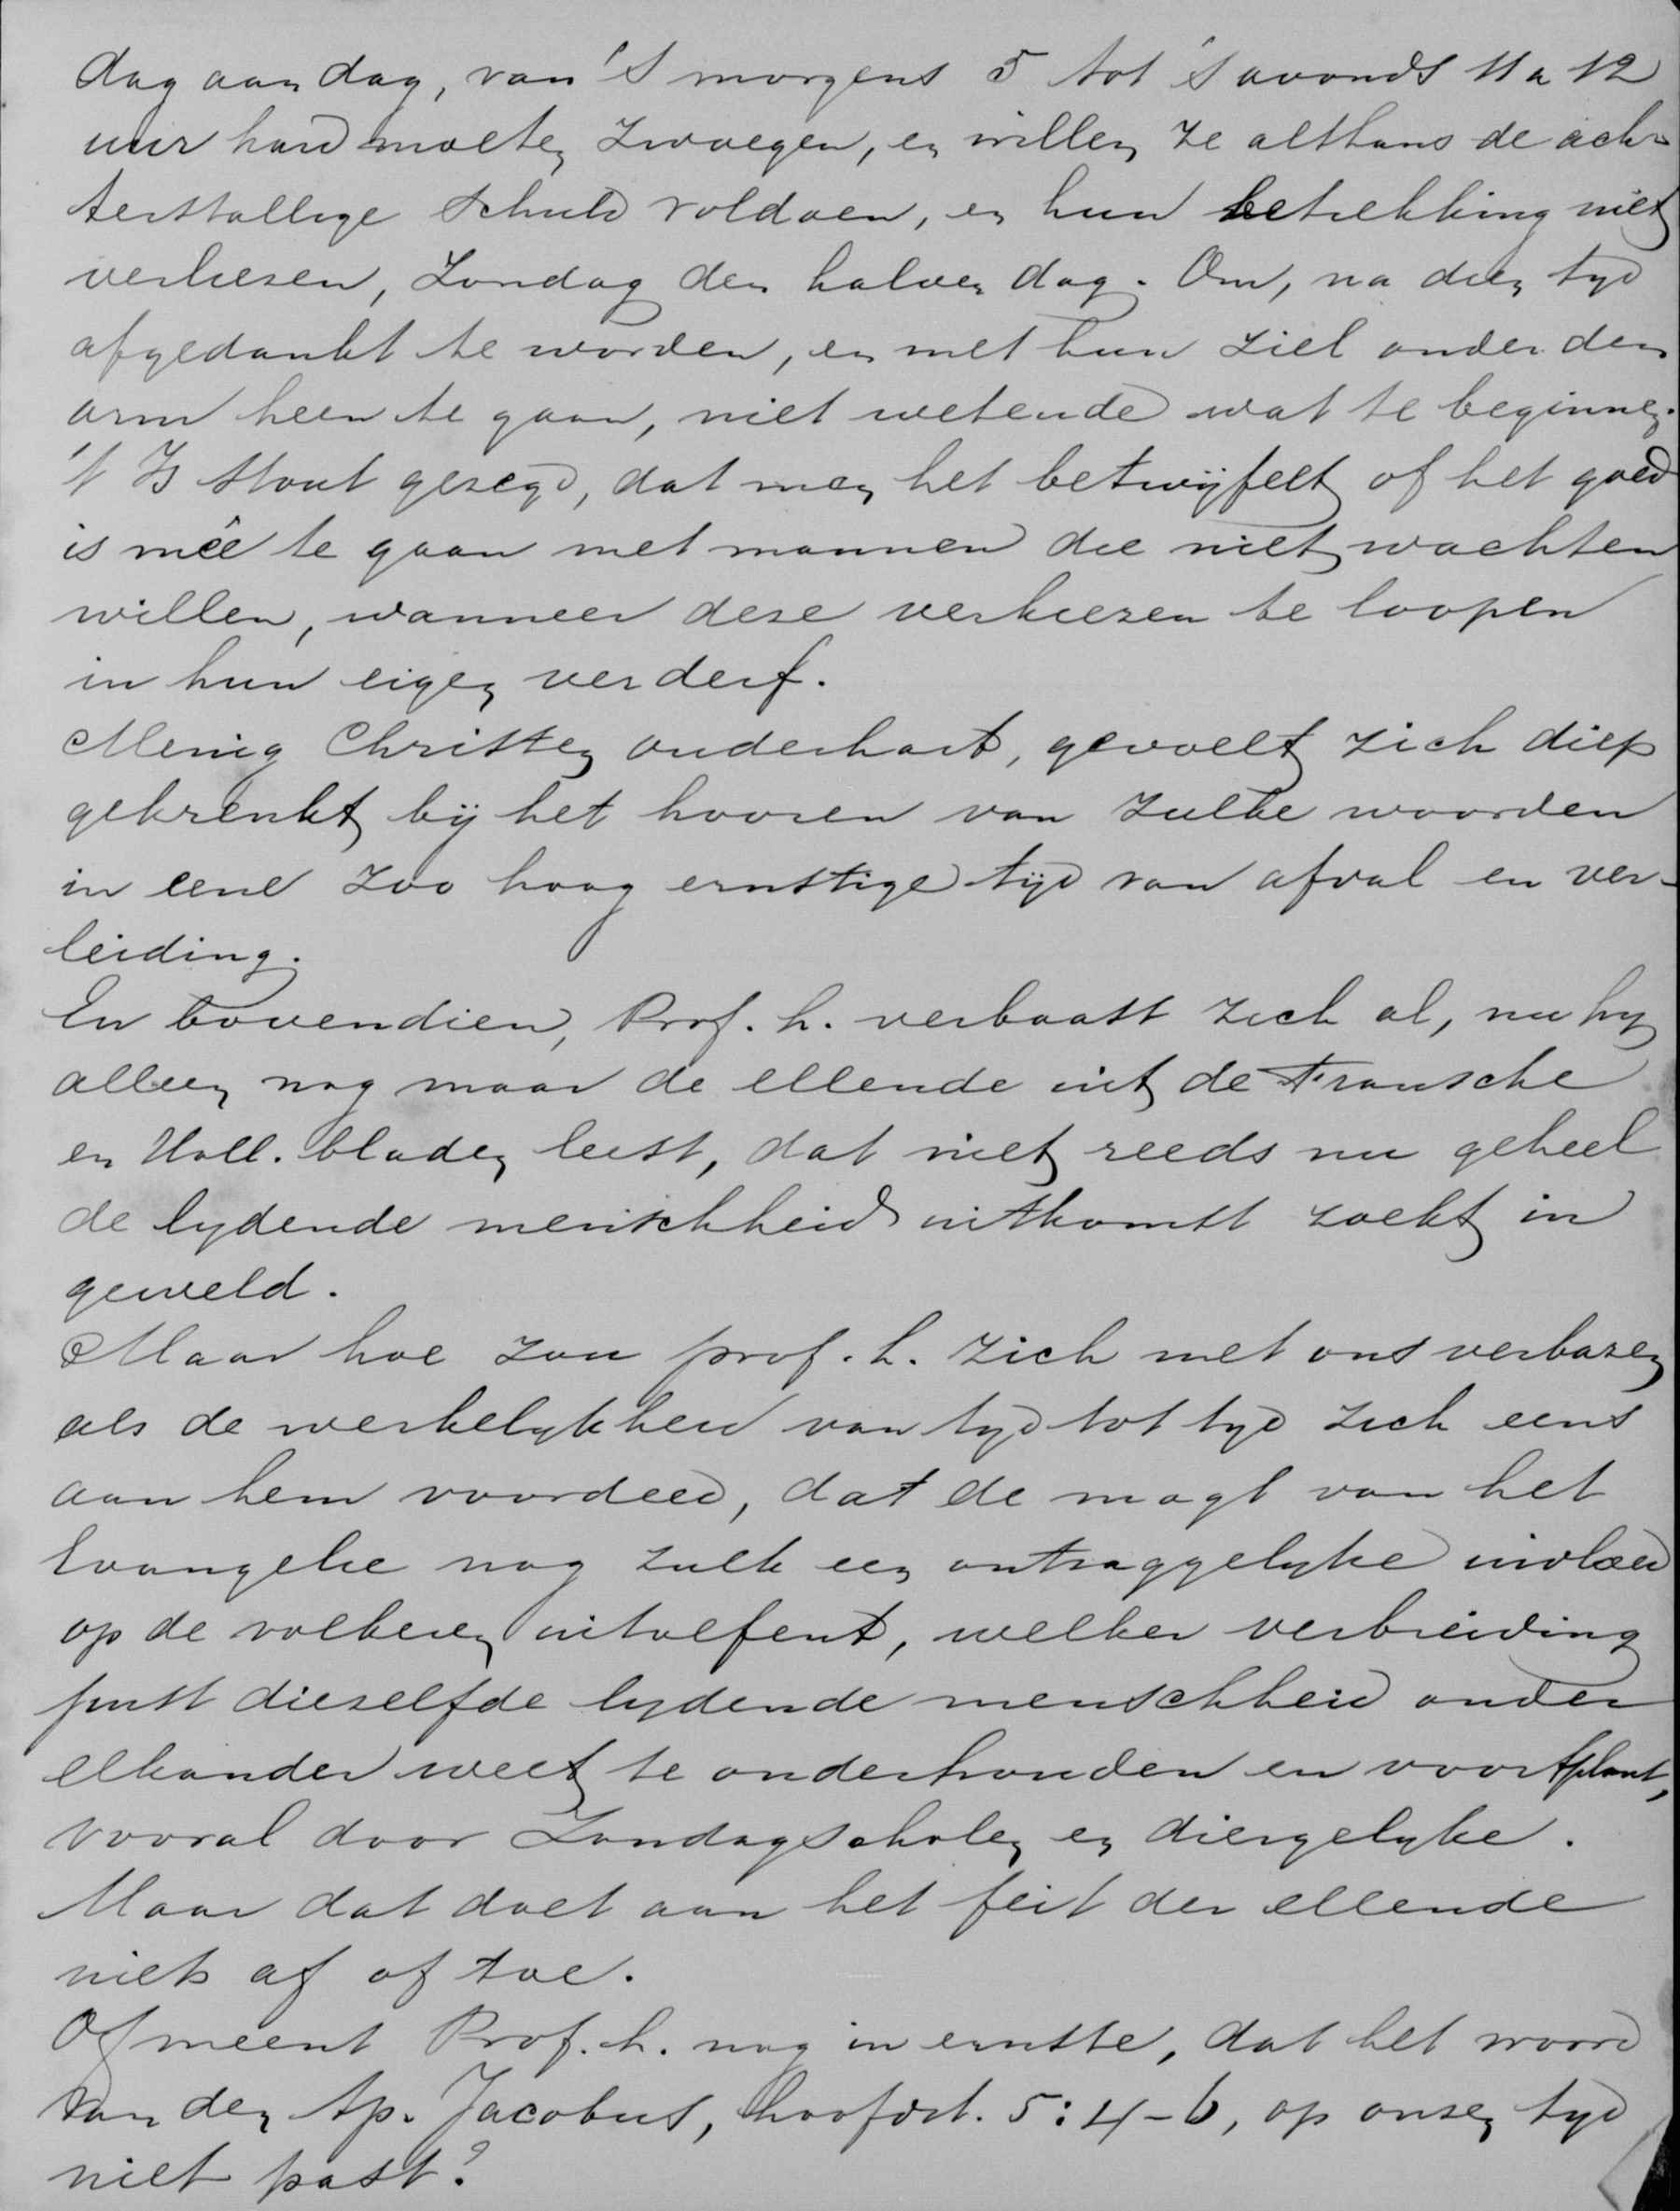 dag aan dag, van 's morgens 5 tot 's avonds 11 a 12
uur hard moeten zwoegen, en willen ze althans de ach-
terstallige schuld voldoen, en hun betrekking niet
verliezen, Zondag den halven dag. Om, na dien tyd
afgedankt te worden, en met hun ziel onder den
arm heen te gaan, niet wetende wat te beginnen.
't Is stout gezegd, dat men het betwijfelt of het goed
is meê te gaan met mannen die niet wachten
willen, wanneer deze verkiezen te loopen
in hun eigen verderf.
Menig Christen ouderhart, gevoelt zich diep
gekrenkt bij het hooren van zulke woorden
in eene zoo hoog ernstige tijd van afval en ver-
leiding.
En bovendien, Prof. h. verbaast zich al, nu hy
alleen nog maar de ellende uit de Fransche
en Holl. bladen leest, dat niet reeds nu geheel
de lydende menschheid uitkomst zoekt in
geweld.
Maar hoe zou prof. h. zich met ons verbazen
als de werkelykheid van tyd tot tyd zich eens
aan hem voordeed, dat de magt van het
Evangelie nog zulk een ontzaggelyke invloed
op de volkeren uitoefent, welker verbreiding
juist diezelfde lydende menschheid onder
elkander weet te onderhouden en voortplant,
vooral door Zondagscholen en diergelyke.
Maar dat doet aan het feit der ellende
niets af of toe.
Of meent Prof. h. nog in ernste, dat het woord
van den Ap. Jacobus, hoofdst. 5:4-6, op onzen tyd
niet past?